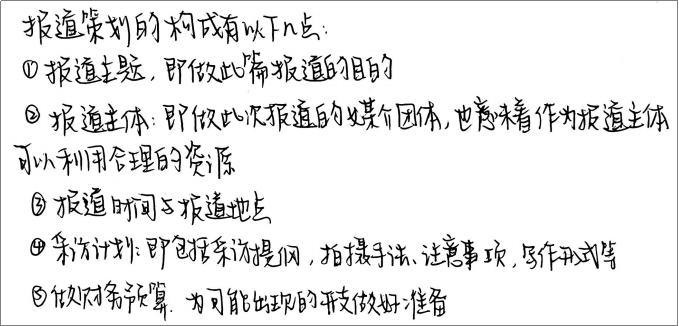 报道策划的构成有以下n点:
①报道主题,即做此篇报道的目的
②报道主体:即做此次报道的媒介团体,也意味着作为报道主体
可以利用合理的资源
③报道时间与报道地点
④采访计划:即包括采访提纲,拍摄手法、注意事项,写作形式等
⑤做财务预算.为可能出现的开支做好准备